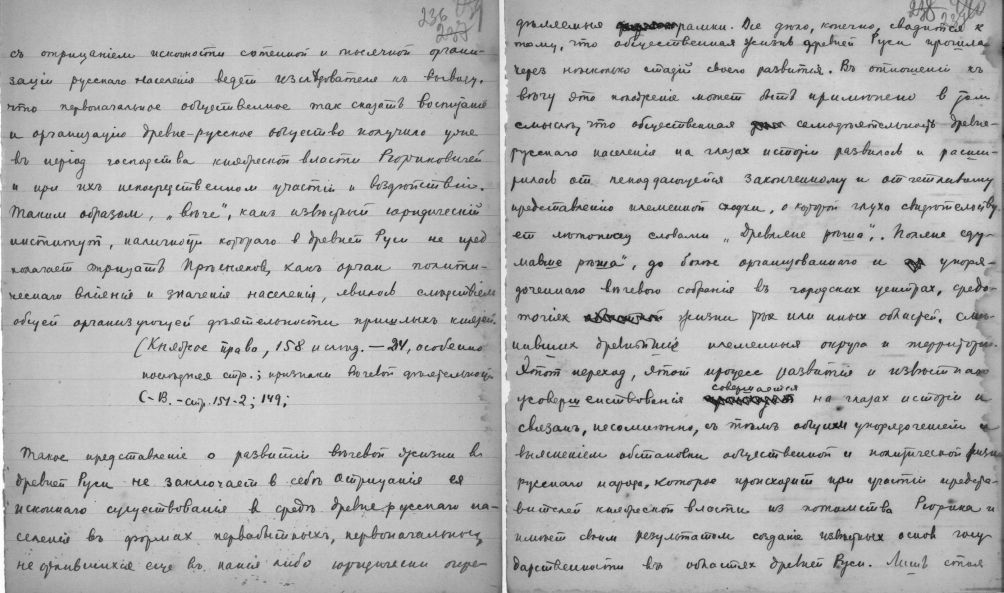 236
съ отрицаніем исконности сотенной и тысячной органи-
заціи русскаго населенія ведет изслѣдователя къ выводу,
что первоначальное общественное так сказать воспитаніе
и организацію древне-русское общество получило уже
въ період господства княжеской власти Рюриковичей
и при ихъ непосредственном участіи и воздѣйствіи.
Таким образом, „вѣче", какъ извѣстный юридическій
институт, наличности котораго в древней Руси не пред
полагает отрицать Прѣсняков, какъ орган полити-
ческаго вліянія и значенія населенія, явилось слѣдствіем
общей организующей дѣятельности пришлыхъ князей.
(Княжое право, 158 и слѣд. — особенно
послѣдняя стр.; признаки вѣчевой дѣятельности
С-В. - стр. 151-2; 149;
Такое представленіе о развитіи вѣчевой жизни в
древней Руси не заключает в себѣ отрицанія ея
исконнаго существованія в средѣ древнерусскаго на-
селенія въ формах первобытныхъ, первоначальных,
не отлившихся еще въ какія либо юридически опре-
дѣляемыя рамки. Все дѣло, конечно, сводится к
тому, что общественная жизнь древней Руси прошла
через нѣсколько стадій своего развитія. Въ отношеніи къ
вѣчу это положеніе может быть примѣнено в том
смыслѣ, что общественная самодѣятельность древне-
русскаго населенія на глазах исторіи развилась и расши-
рилась от неподдающейся законченному и отчетливому
представленію племенной сходки, о которой глухо свидѣтельству
ет лѣтопись словами „Древляне рѣша", „Поляне сду-
мавше рѣша", до более организованнаго и упоря-
доченнаго вѣчевого собранія въ городских центрах, средо-
точіях жизни тѣх или иных областей, смѣ-
нивших древнѣйшіе племенные округа и территоріи.
Этот переход, этот процесс развитія и извѣстнаго
усовершенствованія совершается на глазах исторіи и
связан, несомнѣнно, съ тѣмъ общим упорядоченіем и
выясненіем обстановки общественной и политической жизни
русскаго народа, которое происходит при участіи предста-
вителей княжеской власти из потомства Рюрика и
имѣет своим результатом созданіе извѣстных основ госу
дарственности въ областях древней Руси. Лишь стоя